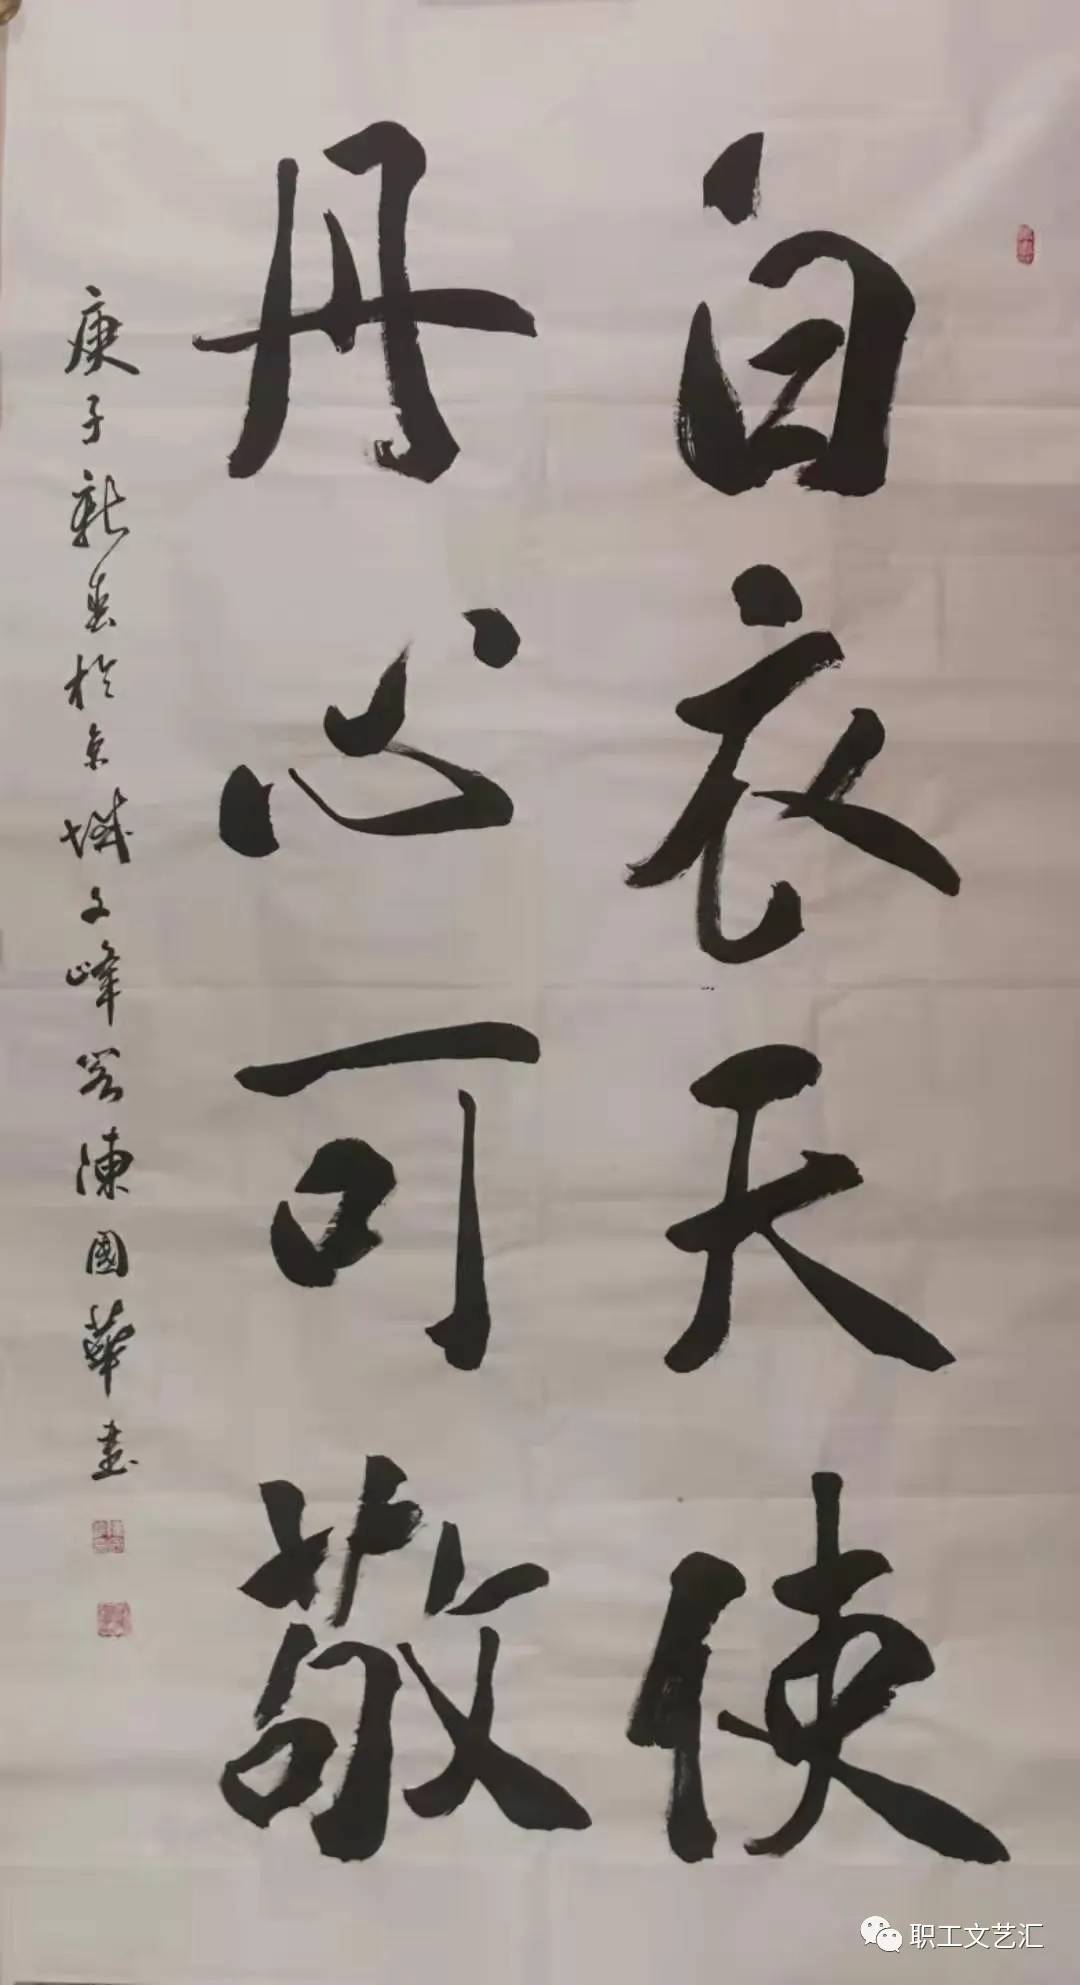 白衣天使
丹心可敬
庚子新春於京城文峰阁陳國華書
职工文艺汇